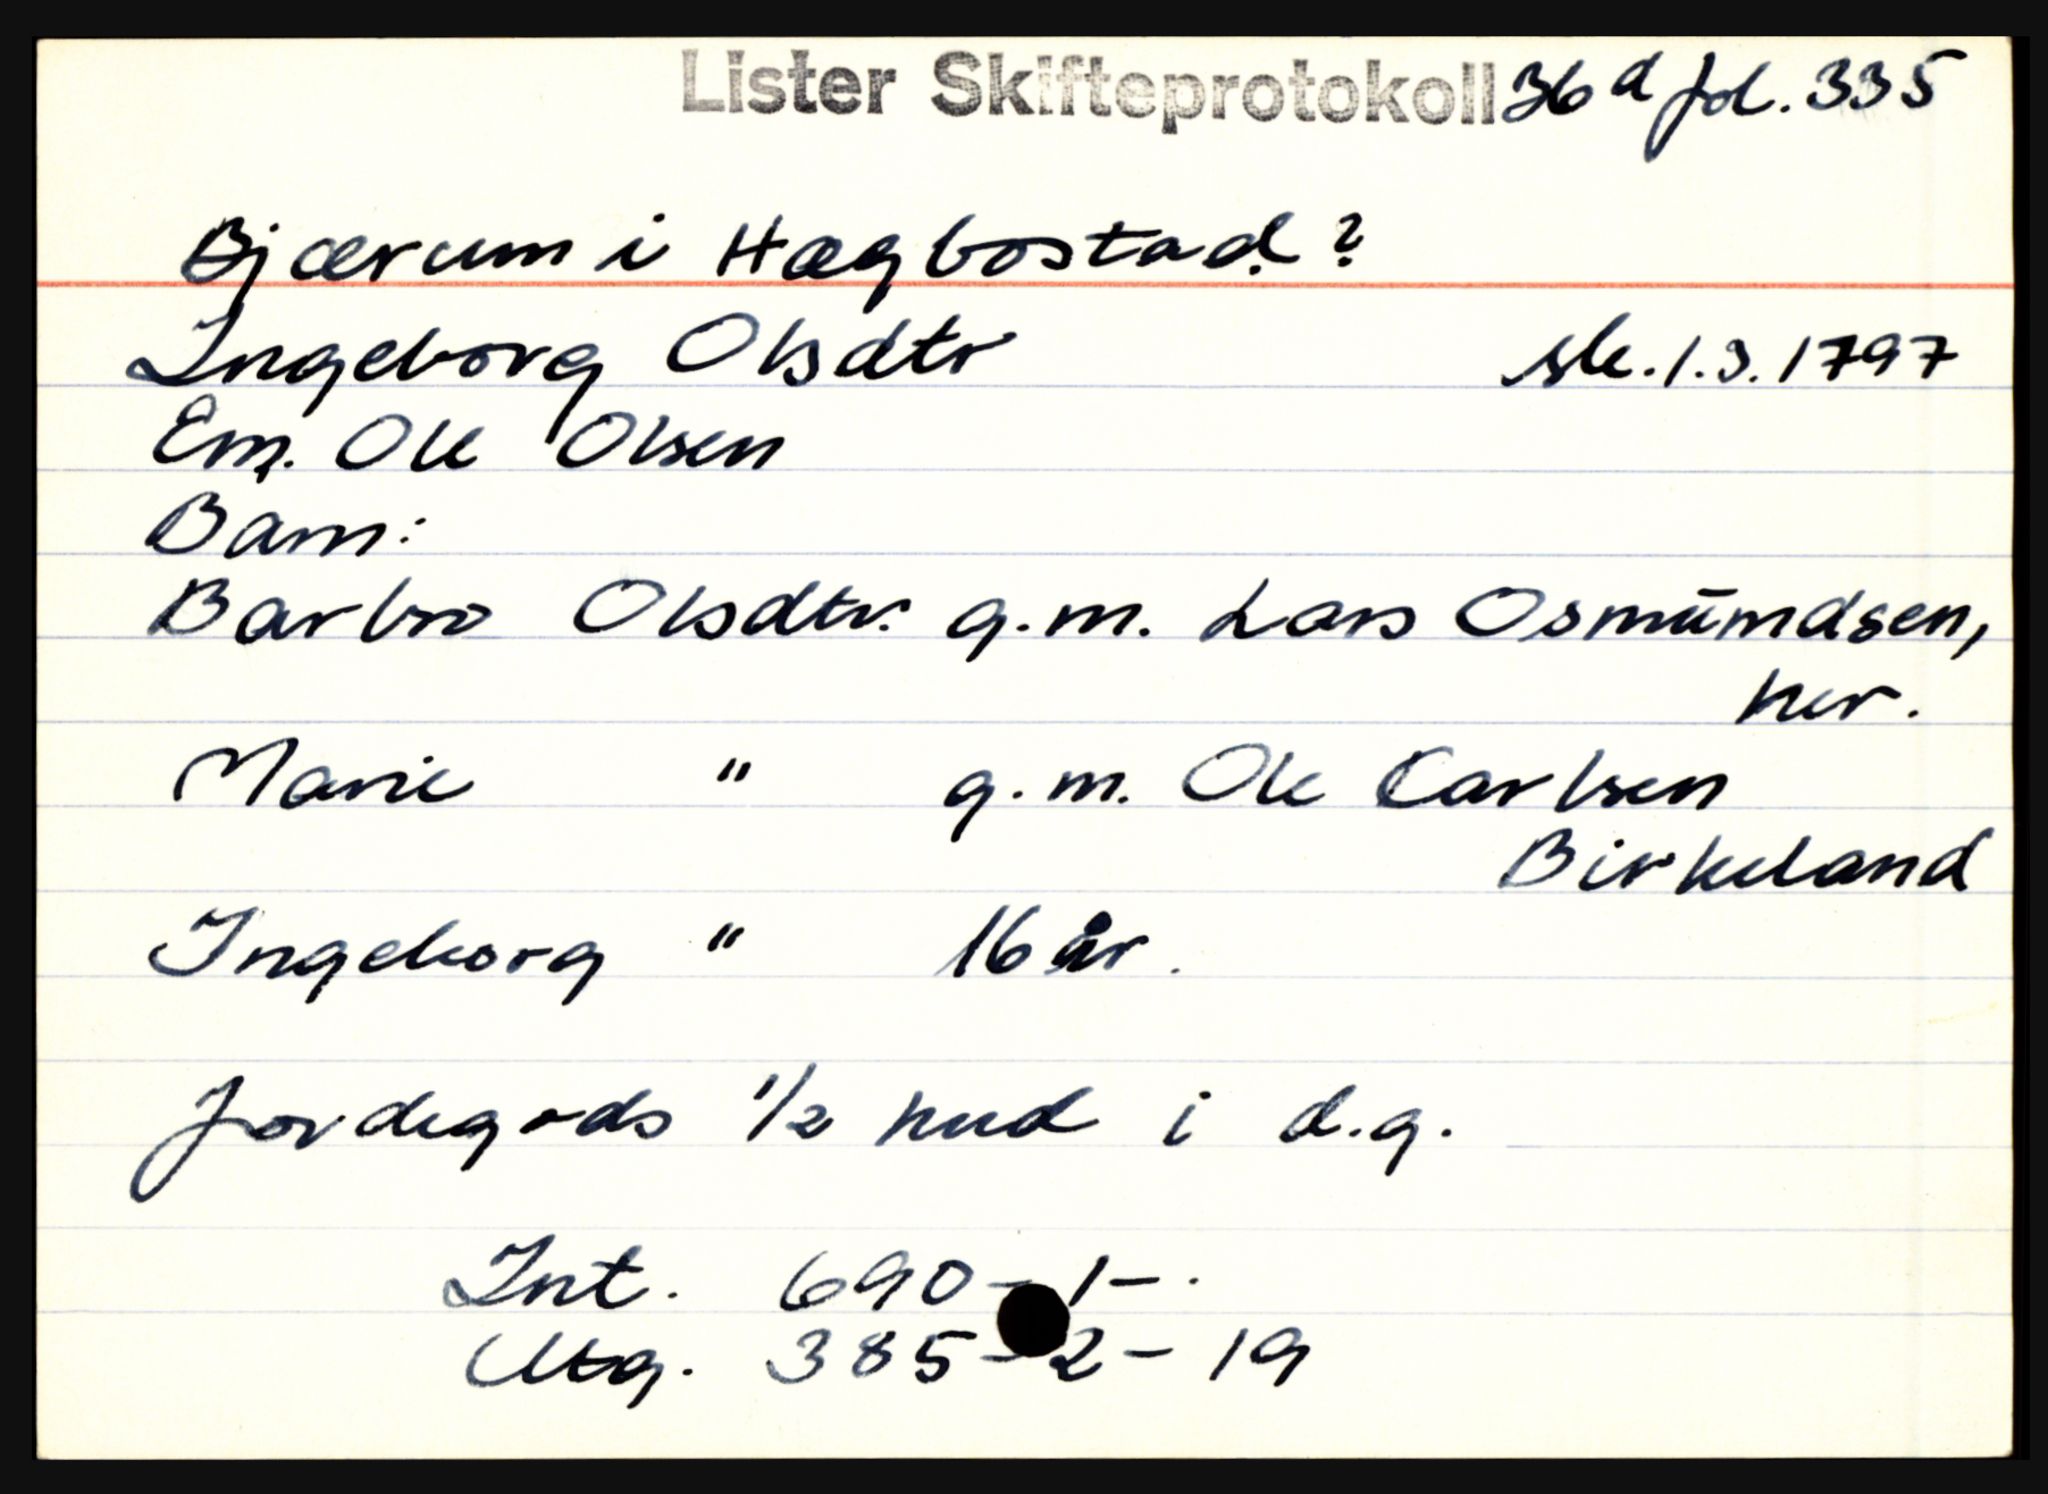 Lister Skifteprotokoll 36 d fol. 335
Bjærum i Hægbostad ?
Ingeborg Olsdtr sk. 1.3.1797
Em. Ole Olsen
Barn:
Barbro Olsdtr. g.m. Lars Osmundsen,
her.
Marie " g.m. Ole Carlsen
Birkeland
Ingeborg " 16 år.
Jordegods 1/2 hud i d.g.
Int. 690 - 1 - .
Utg. 385 - 2 - 19